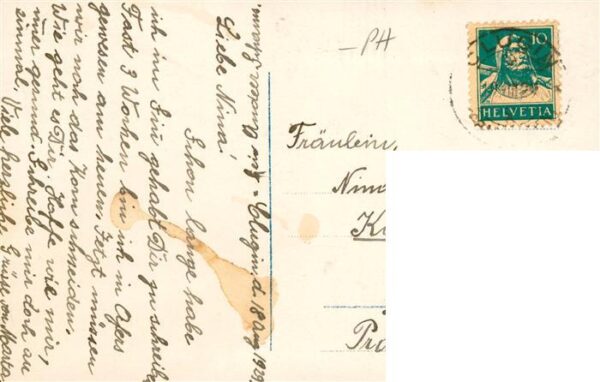 Liebe Nina!
Schon lange habe
ich im Sinn gehabt Dir zu schreiben
Fast 3 Wochen bin ich in Afers
gewesen am heuen. Jetzt müssen
wir noch das Korn schneiden.
Wie geht es Dir. Hoffe wie mir,
immer gesund. Schreibe mir doch au
einmal. Viele herzliche Grüsse von Marta
d. 18 Aug 1929.
PH
10
HELVETIA
Fräulein,
Nina
K
Pr